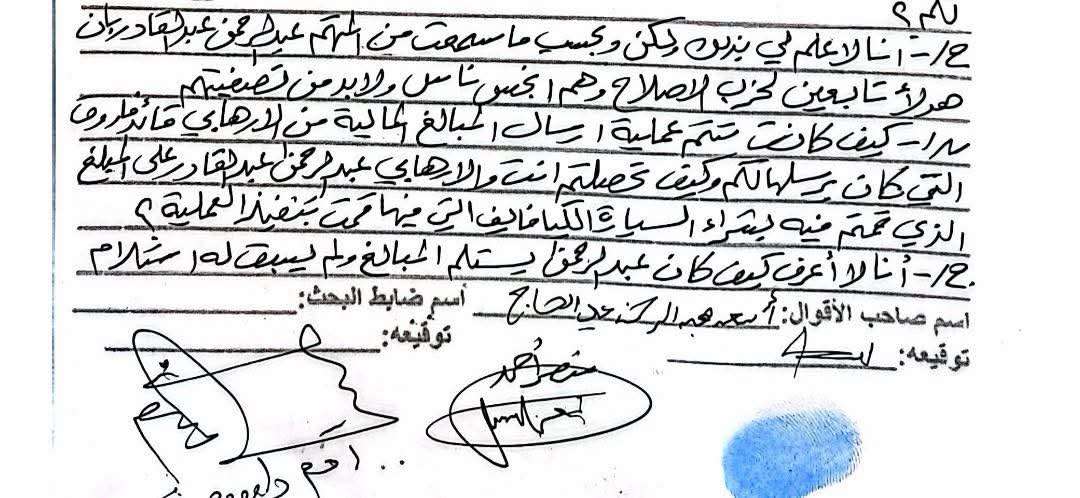 لكم ؟
ج/- أنا لا علم لي بذلك ولكن وبحسب ما سمعت من المتهم عبدالرحمن عبدالقادر بان
هولأ تابعين لحزب الاصلاح وهم ناس ولابد من تصفيتهم
س/- كيف كانت تتم عملية ارسال المبالغ المالية من الارهابي
التي كان يرسلها لكم وكيف تحصلتم انت والارهابي عبدالرحمن عبدالقادر على المبلغ
الذي قمتم فيه بشراء السيارة الكيا فايف التي منها قمت بتنفيذ العملية ؟
ج/- أنا لا أعرف كيف كان عبدالرحمن يستلم المبالغ ولم يسبق له استلام
اسم صاحب الأقوال: أسعد عبد الحاج
أسم ضابط البحث:
توقيعه:
توقيعه:
أحمد